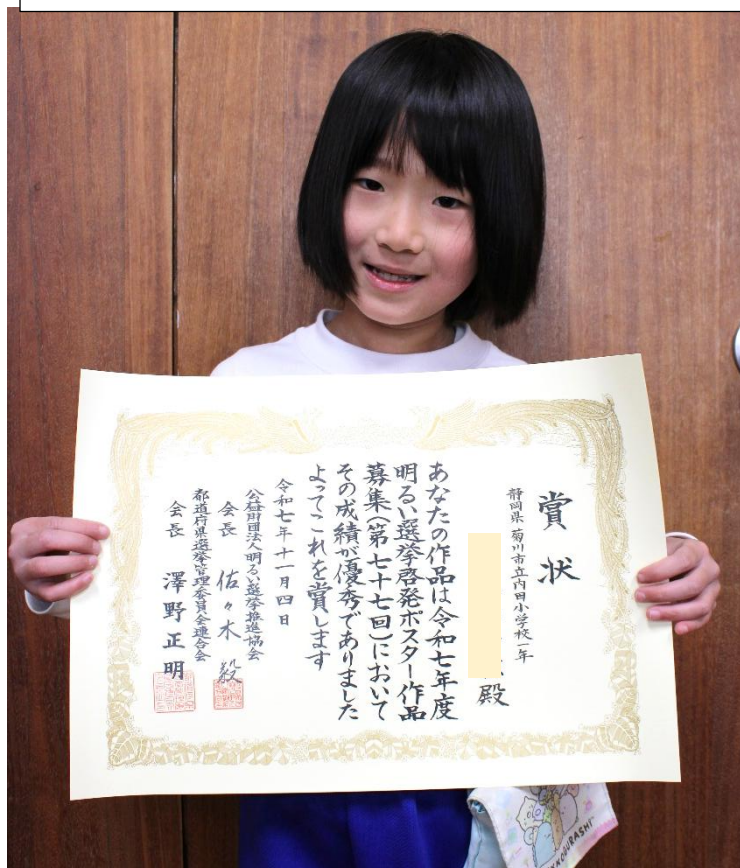 賞状
静岡県菊川市立内田小学校一年
殿
あなたの作品は令和七年度
明るい選挙啓発ポスター作品
募集(第七十七回)において
その成績が優秀でありました
よってこれを賞します
令和七年十一月四日
公益財団法人明るい選挙推進協会
会長 佐々木 毅
都道府県選挙管理委員会連合会
会長 澤野正明